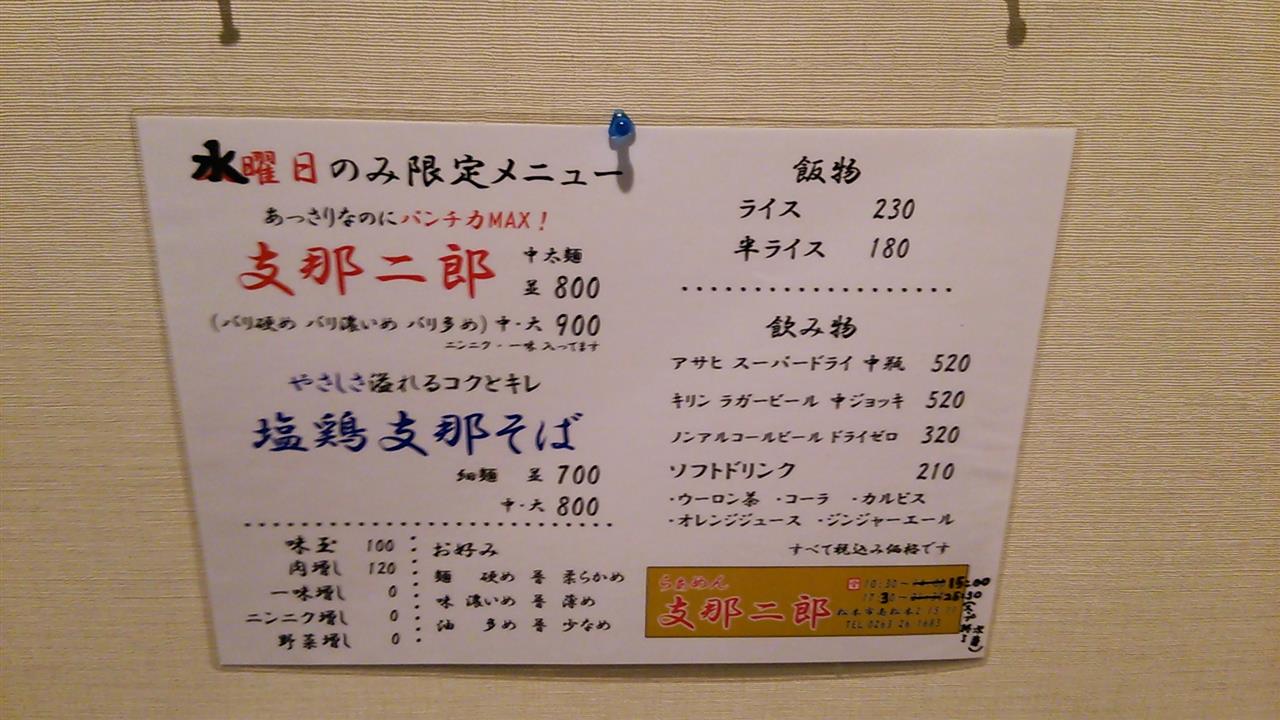 水曜日のみ限定メニュー
あっさりなのにパンチ力MAX!
支那二郎 中太麺
並 800
(バリ硬め バリ濃いめ バリ多め) 中・大 900
ニンニク・一味 入ってます
やさしさ溢れるコクとキレ
塩鶏支那そば
細麺 並 700
中・大 800
味玉 100
肉増し 120
一味増し 0
ニンニク増し 0
野菜増し 0
お好み
麺 硬め 普 柔らかめ
味 濃いめ 普 薄め
油 多め 普 少なめ
飯物
ライス 230
半ライス 180
飲み物
アサヒ スーパードライ 中瓶 520
キリン ラガービール 中ジョッキ 520
ノンアルコールビール ドライゼロ 320
ソフトドリンク 210
・ウーロン茶 ・コーラ ・カルピス
・オレンジジュース ・ジンジャーエール
すべて税込み価格です
らぁめん
支那二郎
10:30～ 15:00
TEL 0263 26 1683